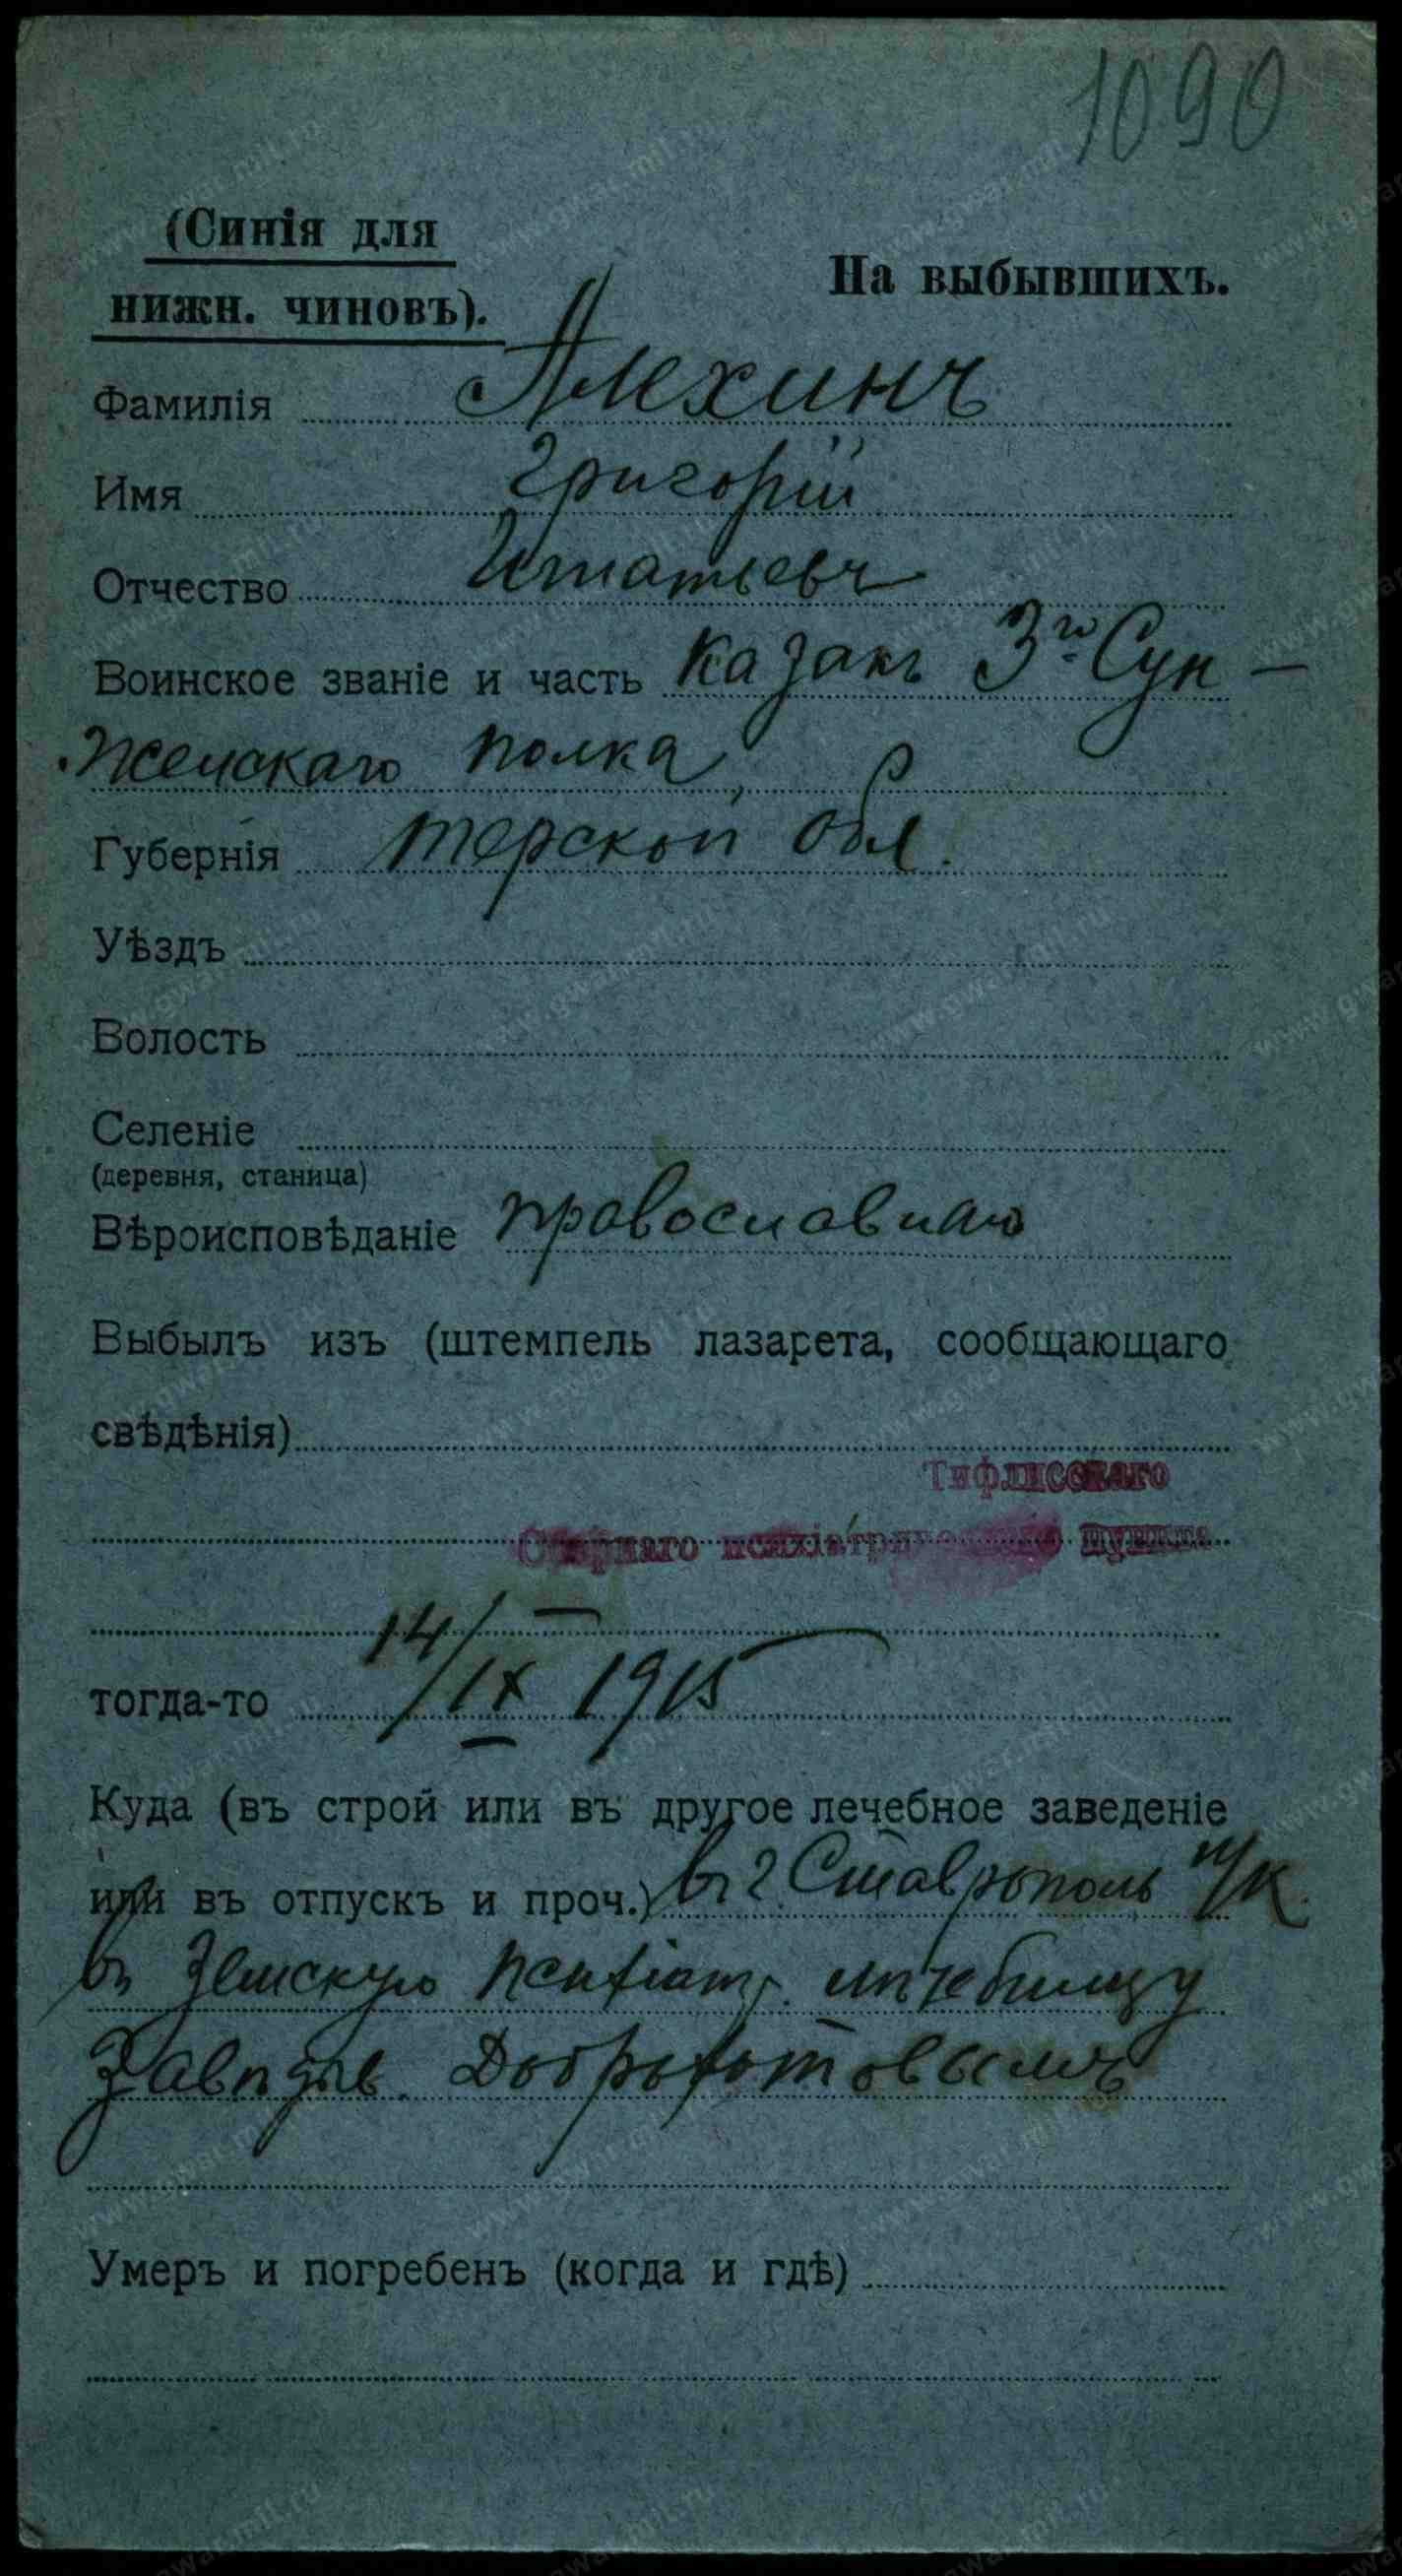 1090
(Синія для
нижн. чиновъ).
На выбывшихъ.
Фамилія Алехинъ
Имя Григорій
Отчество Игнатьевъ
Воинское званіе и часть казакъ 3го Сун-
женскаго полка
Губернія Терской обл.
Уѣздъ
Волость
Селеніе
(деревня, станица)
Вѣроисповѣданіе православнаго
Выбылъ изъ (штемпель лазарета, сообщающаго
свѣдѣнія)
Тифлисскаго
Сборнаго психіатрическаго пункта
14/IX 1915
тогда-то
Куда (въ строй или въ другое лечебное заведеніе
или въ отпускъ и проч.) въ г Ставрополь
въ Земскую психіатр. лѣчебницу
Завѣдыв. Доброхотовымъ
Умеръ и погребенъ (когда и гдѣ)